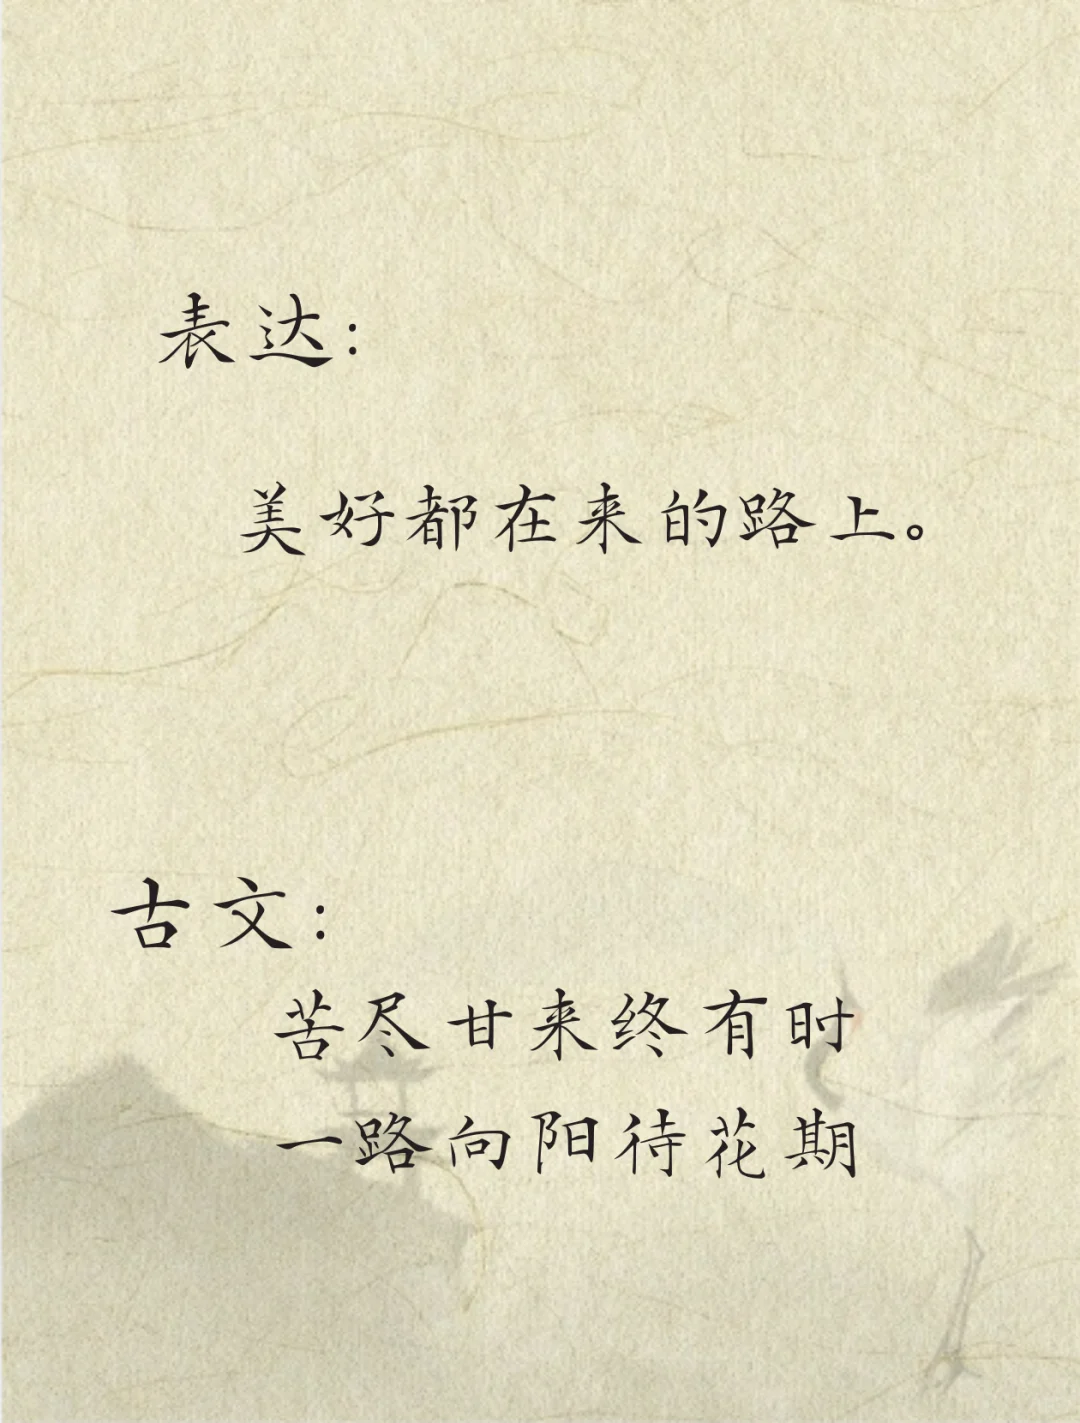 表达：
美好都在来的路上。
古文：
苦尽甘来终有时
一路向阳待花期